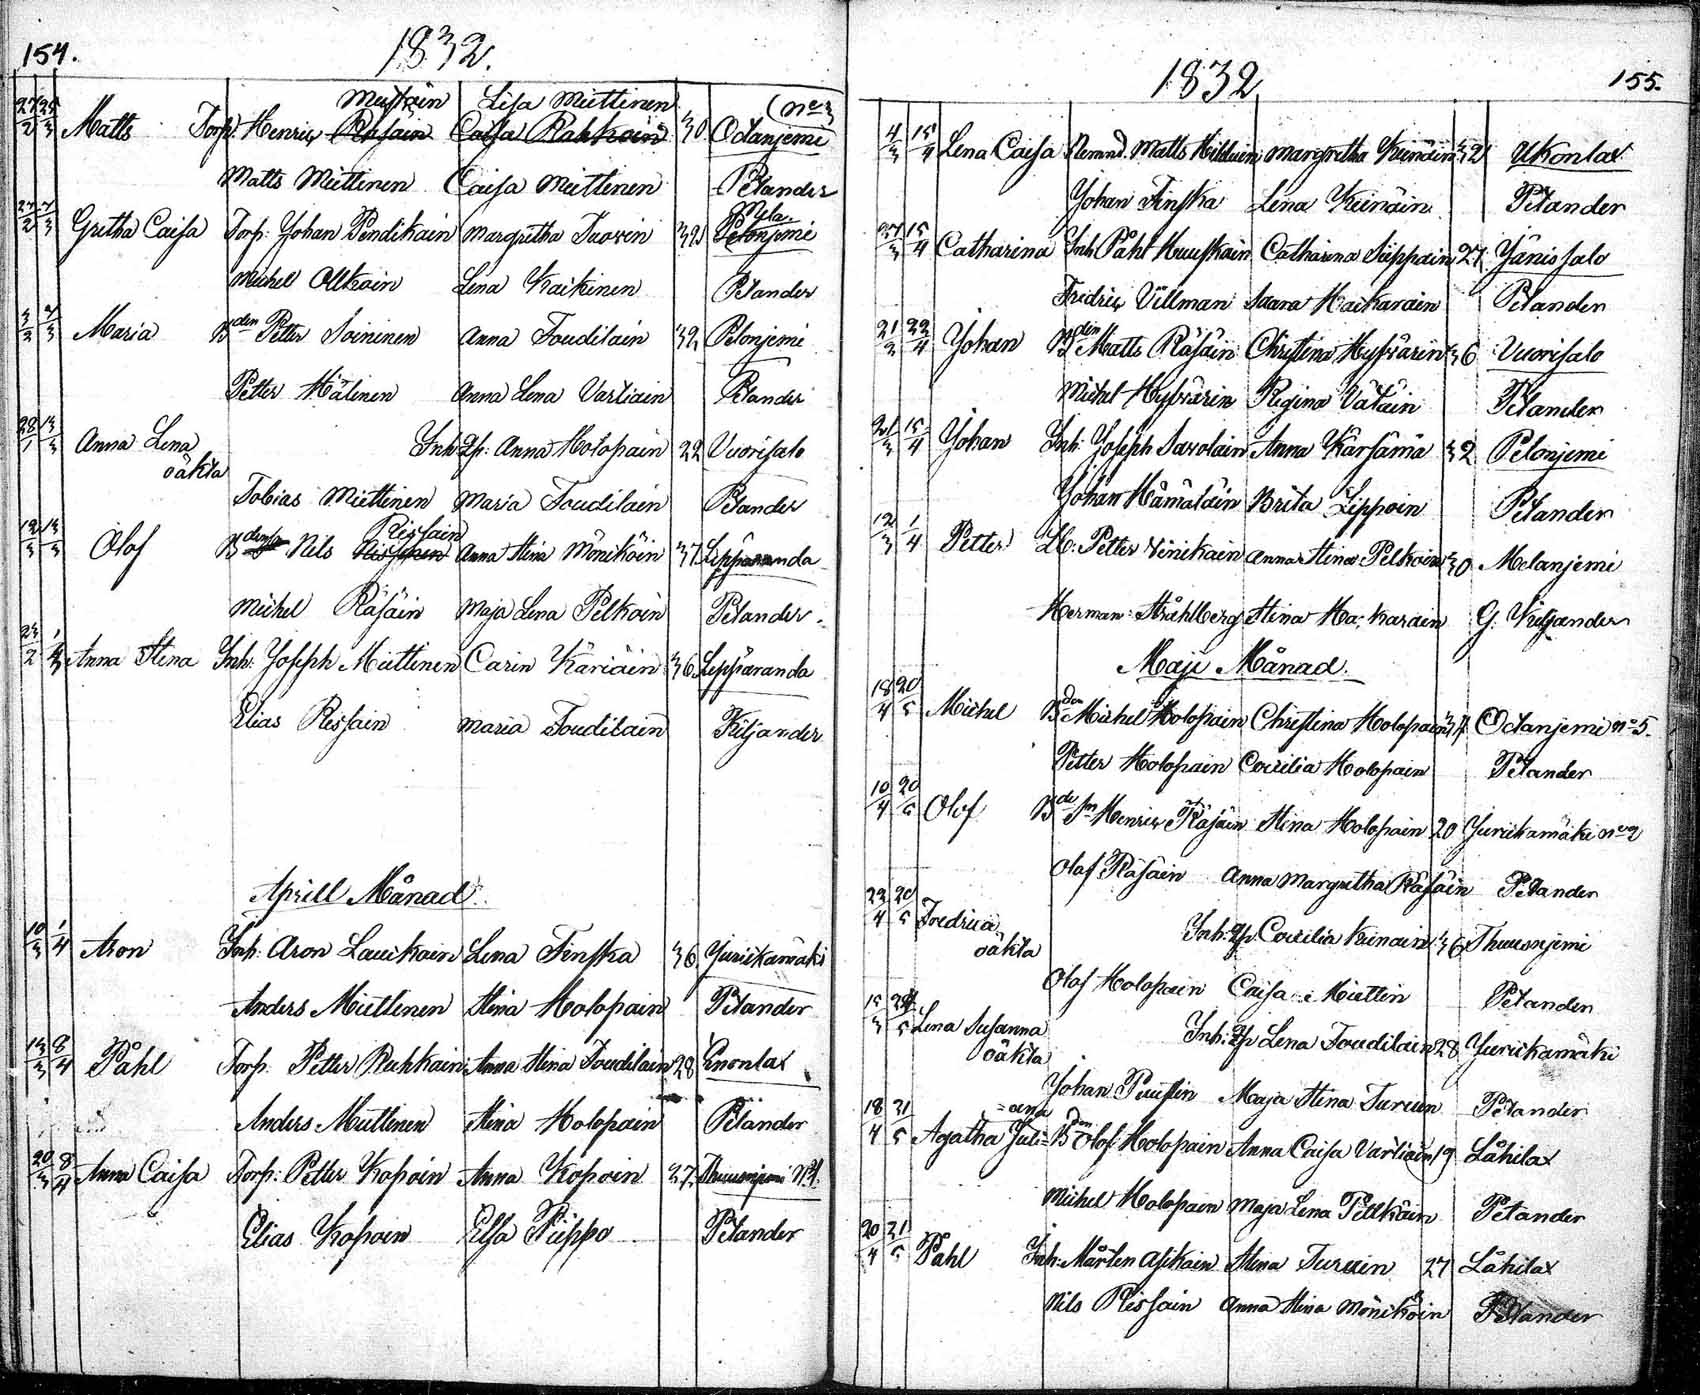 154.
1832.
Miettinen Lisa Miettinen (No 3
27/2 25/3 Matts Torp: Henric Räsäin Caisa Rahkoin 30 Oclanjemi
Matts Miettinen Caisa Miettinen Pelander
Nila-
27/2 4/3 Gretha Caisa Torp: Johan Pendikäin Margretha Tuovin 32 Pelonjemi
Michel Alkain Lena Kaikinen Pelander
3/2 4/3 Maria Bden Petter Soininen Anna Toudilain 32 Pelonjemi
Petter Hälinen Anna Lena Vartiain Pelander
28/1 13/3 Anna Lena Inh: Qp: Anna Holopain 22 Vuorisalo
oäkta
Tobias Miettinen Maria Toudilain Pelander
Rissain
12/3 13/3 Olof Bden Nils Anna Stina Möniköin 37 Leppäranda
Michel Räsäin Maja Lena Pelkoin Pelander.
23/2 1/3 Anna Stina Inh: Joseph Miettinen Carin Käriäin 36 Leppäranda
Elias Rissain Maria Toudilain Kiljander
Aprill Månad.
10/3 1/4 Aron Inh: Aron Lauikain Lena Finska 36 Jurickamäki
Anders Miettinen Stina Holopain Pelander
13/3 8/4 Påhl Torp. Petter Ruhkain Anna Stina Toudilain 28 Enonlax
Anders Miettinen Stina Holopain Pelander
20/3 8/4 Anna Caisa Torp: Petter Kopoin Anna Kopoin 27. Thuusnjemi No 1.
Elias Kopoin Elsa Pieppo Pelander
1832
155.
4/3 15/4 Lena Caisa Nemnd. Matts Hilduin Margretha Keinäin 32 Ukonlax
Johan Finska Lena Keinäin Pelander
27/3 15/4 Catharina Inh Påhl Huuskain Catharina Sieppain 27 Jänissalo
Fredric Villman Saara Haikarain Pelander
21/3 22/4 Johan Bden Matts Räsäin Christina Hyvärin 36 Vuorisalo
Michel Hyvärin Regina Vätäin Pelander
21/3 15/4 Johan Inh: Joseph Savolain Anna Kärsämä 32 Pelonjemi
Johan Hämäläin Brita Lippoin Pelander
12/3 1/4 Petter Petter Vinikain Anna Stina Pelkoin 30 Melanjemi
Herman: Stråhlberg Stina Ha; karain G. Kiljander
Maji Månad.
18/4 20/5 Michel Bden Michel Holopain Christina Holopain 34 Oclanjemi No 5.
Petter Holopain Cecilia Holopain Pelander
10/4 20/5 Olof Bde Sn Henric Räsäin Stina Holopain 20 Jurickamäki No 2
Olof Räsäin Anna Margretha Räsäin Pelander
22/4 20/5 Fredrica Inh: Qp Cecilia Keinain 36 Thuusnjemi
oäkta
Olof Holopain Caisa Miettin Pelander
15/3 28/5 Lena Susanna Inh: Qp Lena Toudilain 28 Jurickamäki
oäkta
Johan Puustin Maja Stina Turuen Pelander
=ana
18/4 31/5 Agatha Juli= Bden Olof Holopain Anna Caisa Vartiain 19 Låhilax
Michel Holopain Maja Lena Pellkäin Pelander
20/4 31/5 Påhl Inh: Mårten Asikain Stina Turuin 27 Låhilax
Nils Rissain Anna Stina Möniköin Pelander